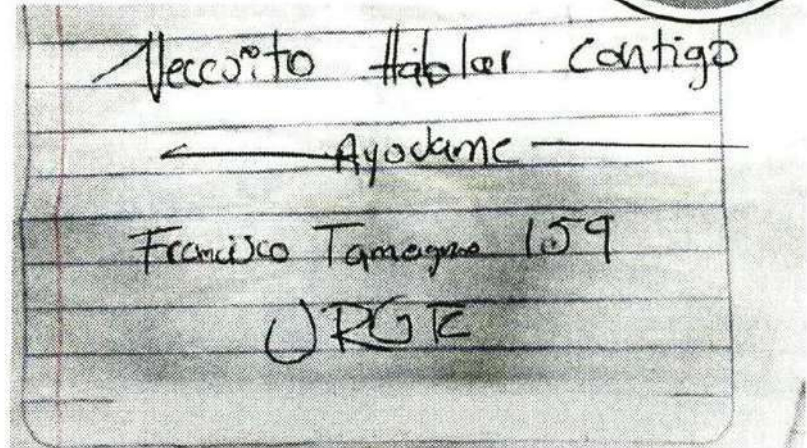 Neccsito Hablar Contigo
Ayudame
Francisco Tamagno 159
URGE